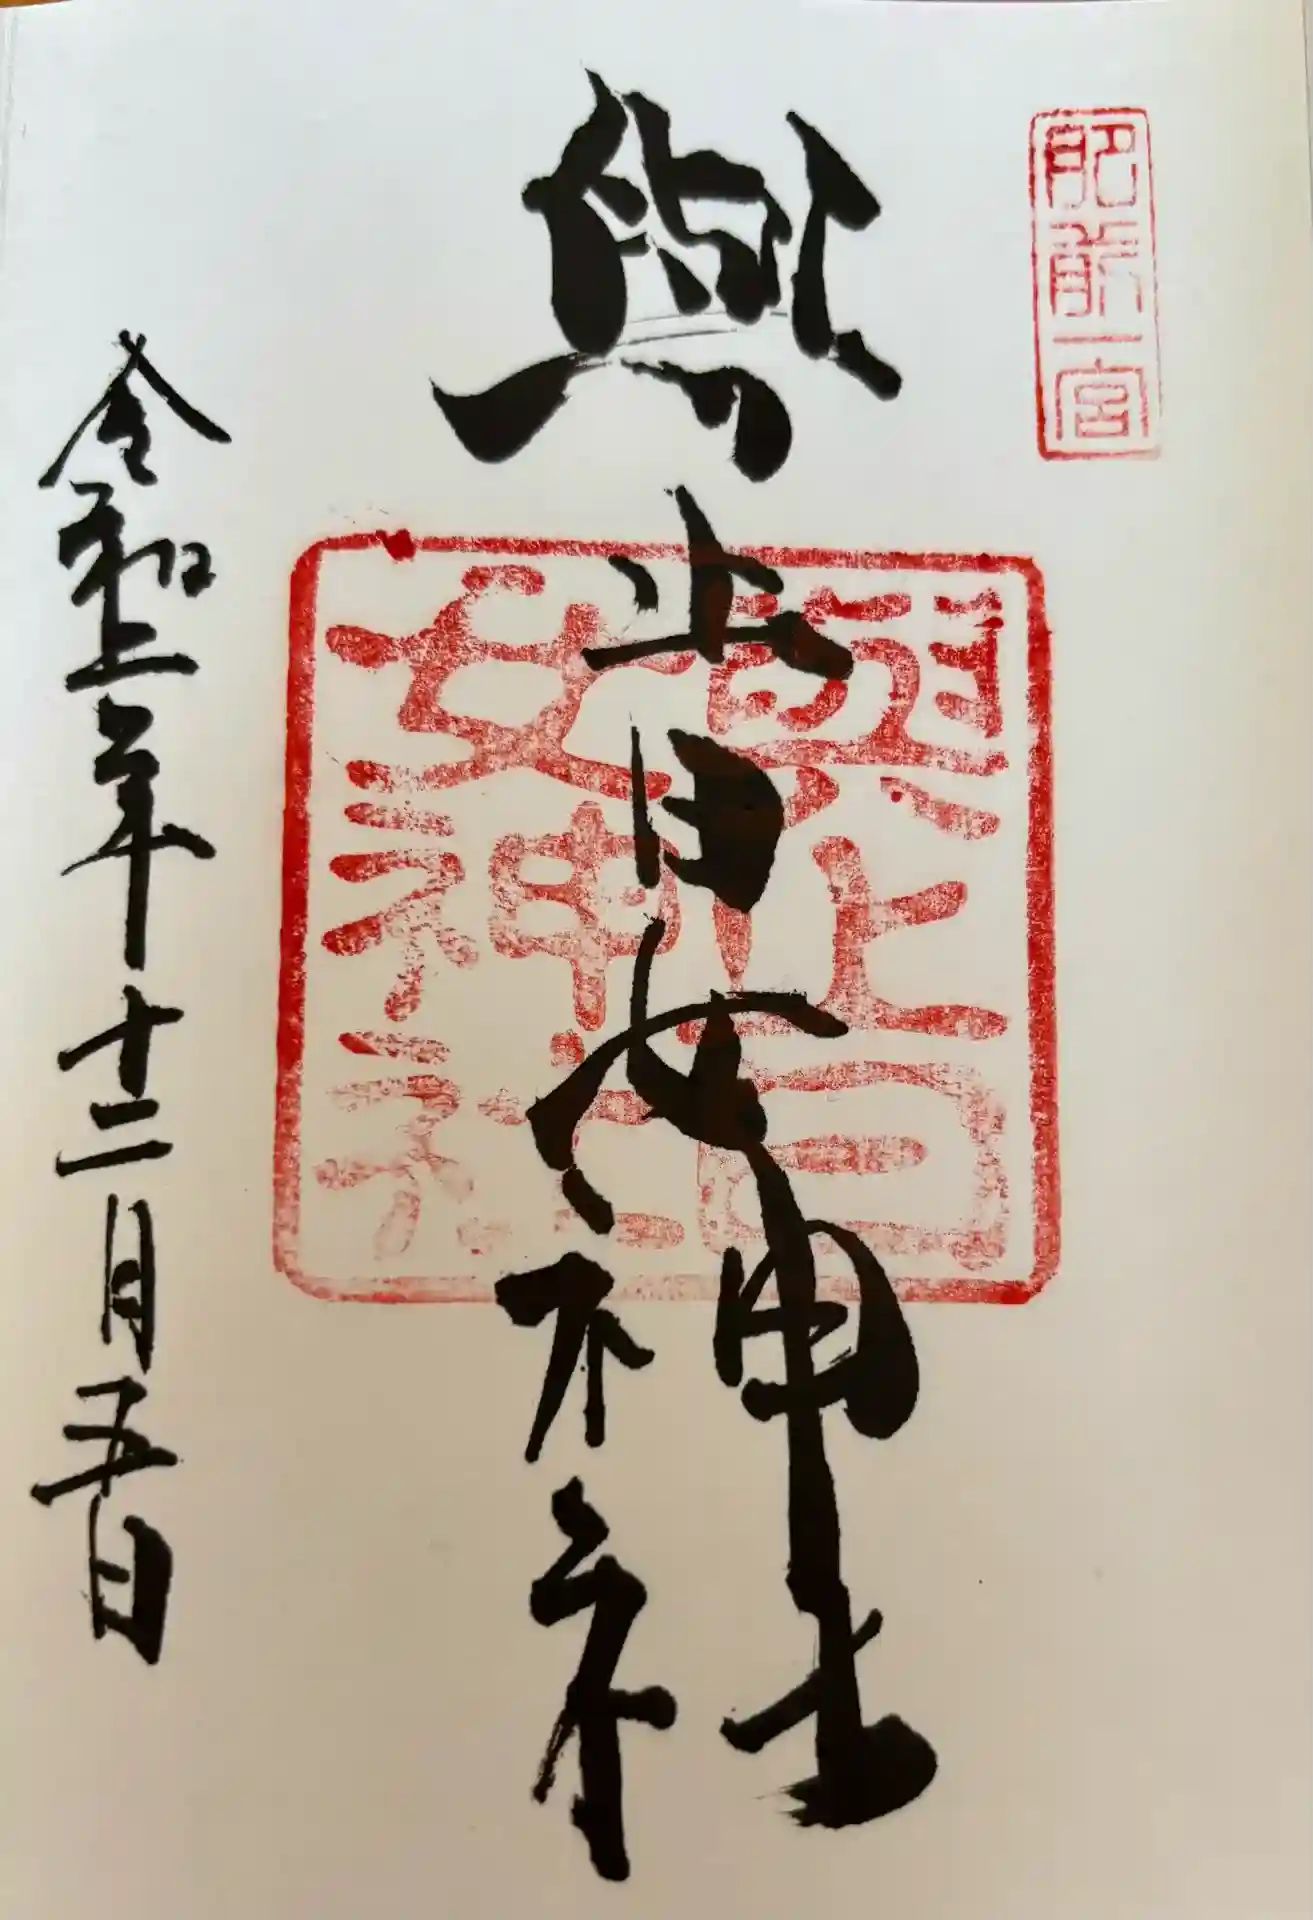 肥前一宮
與止日女神社
與止日
女神社
令和 年十二月五日